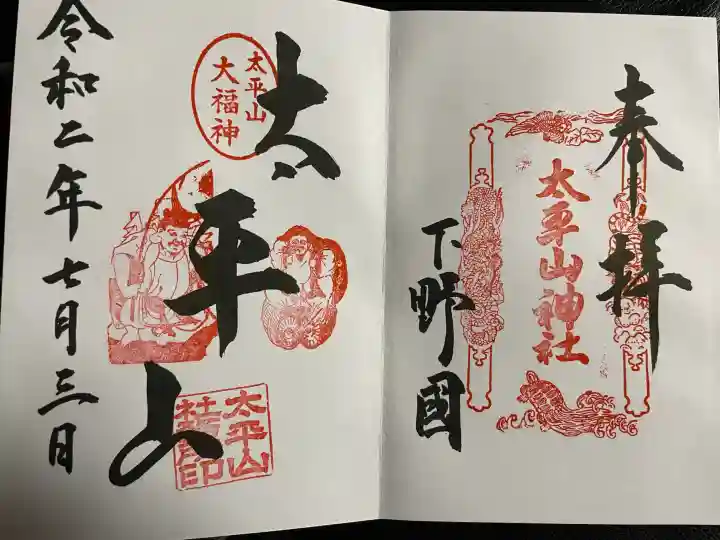 奉拝
太平山神社
下野國
太平山
太平山
大福神
太平山
社務所印
令和二年七月三日